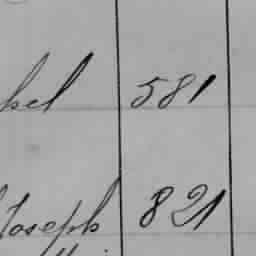 581
Joseph 821